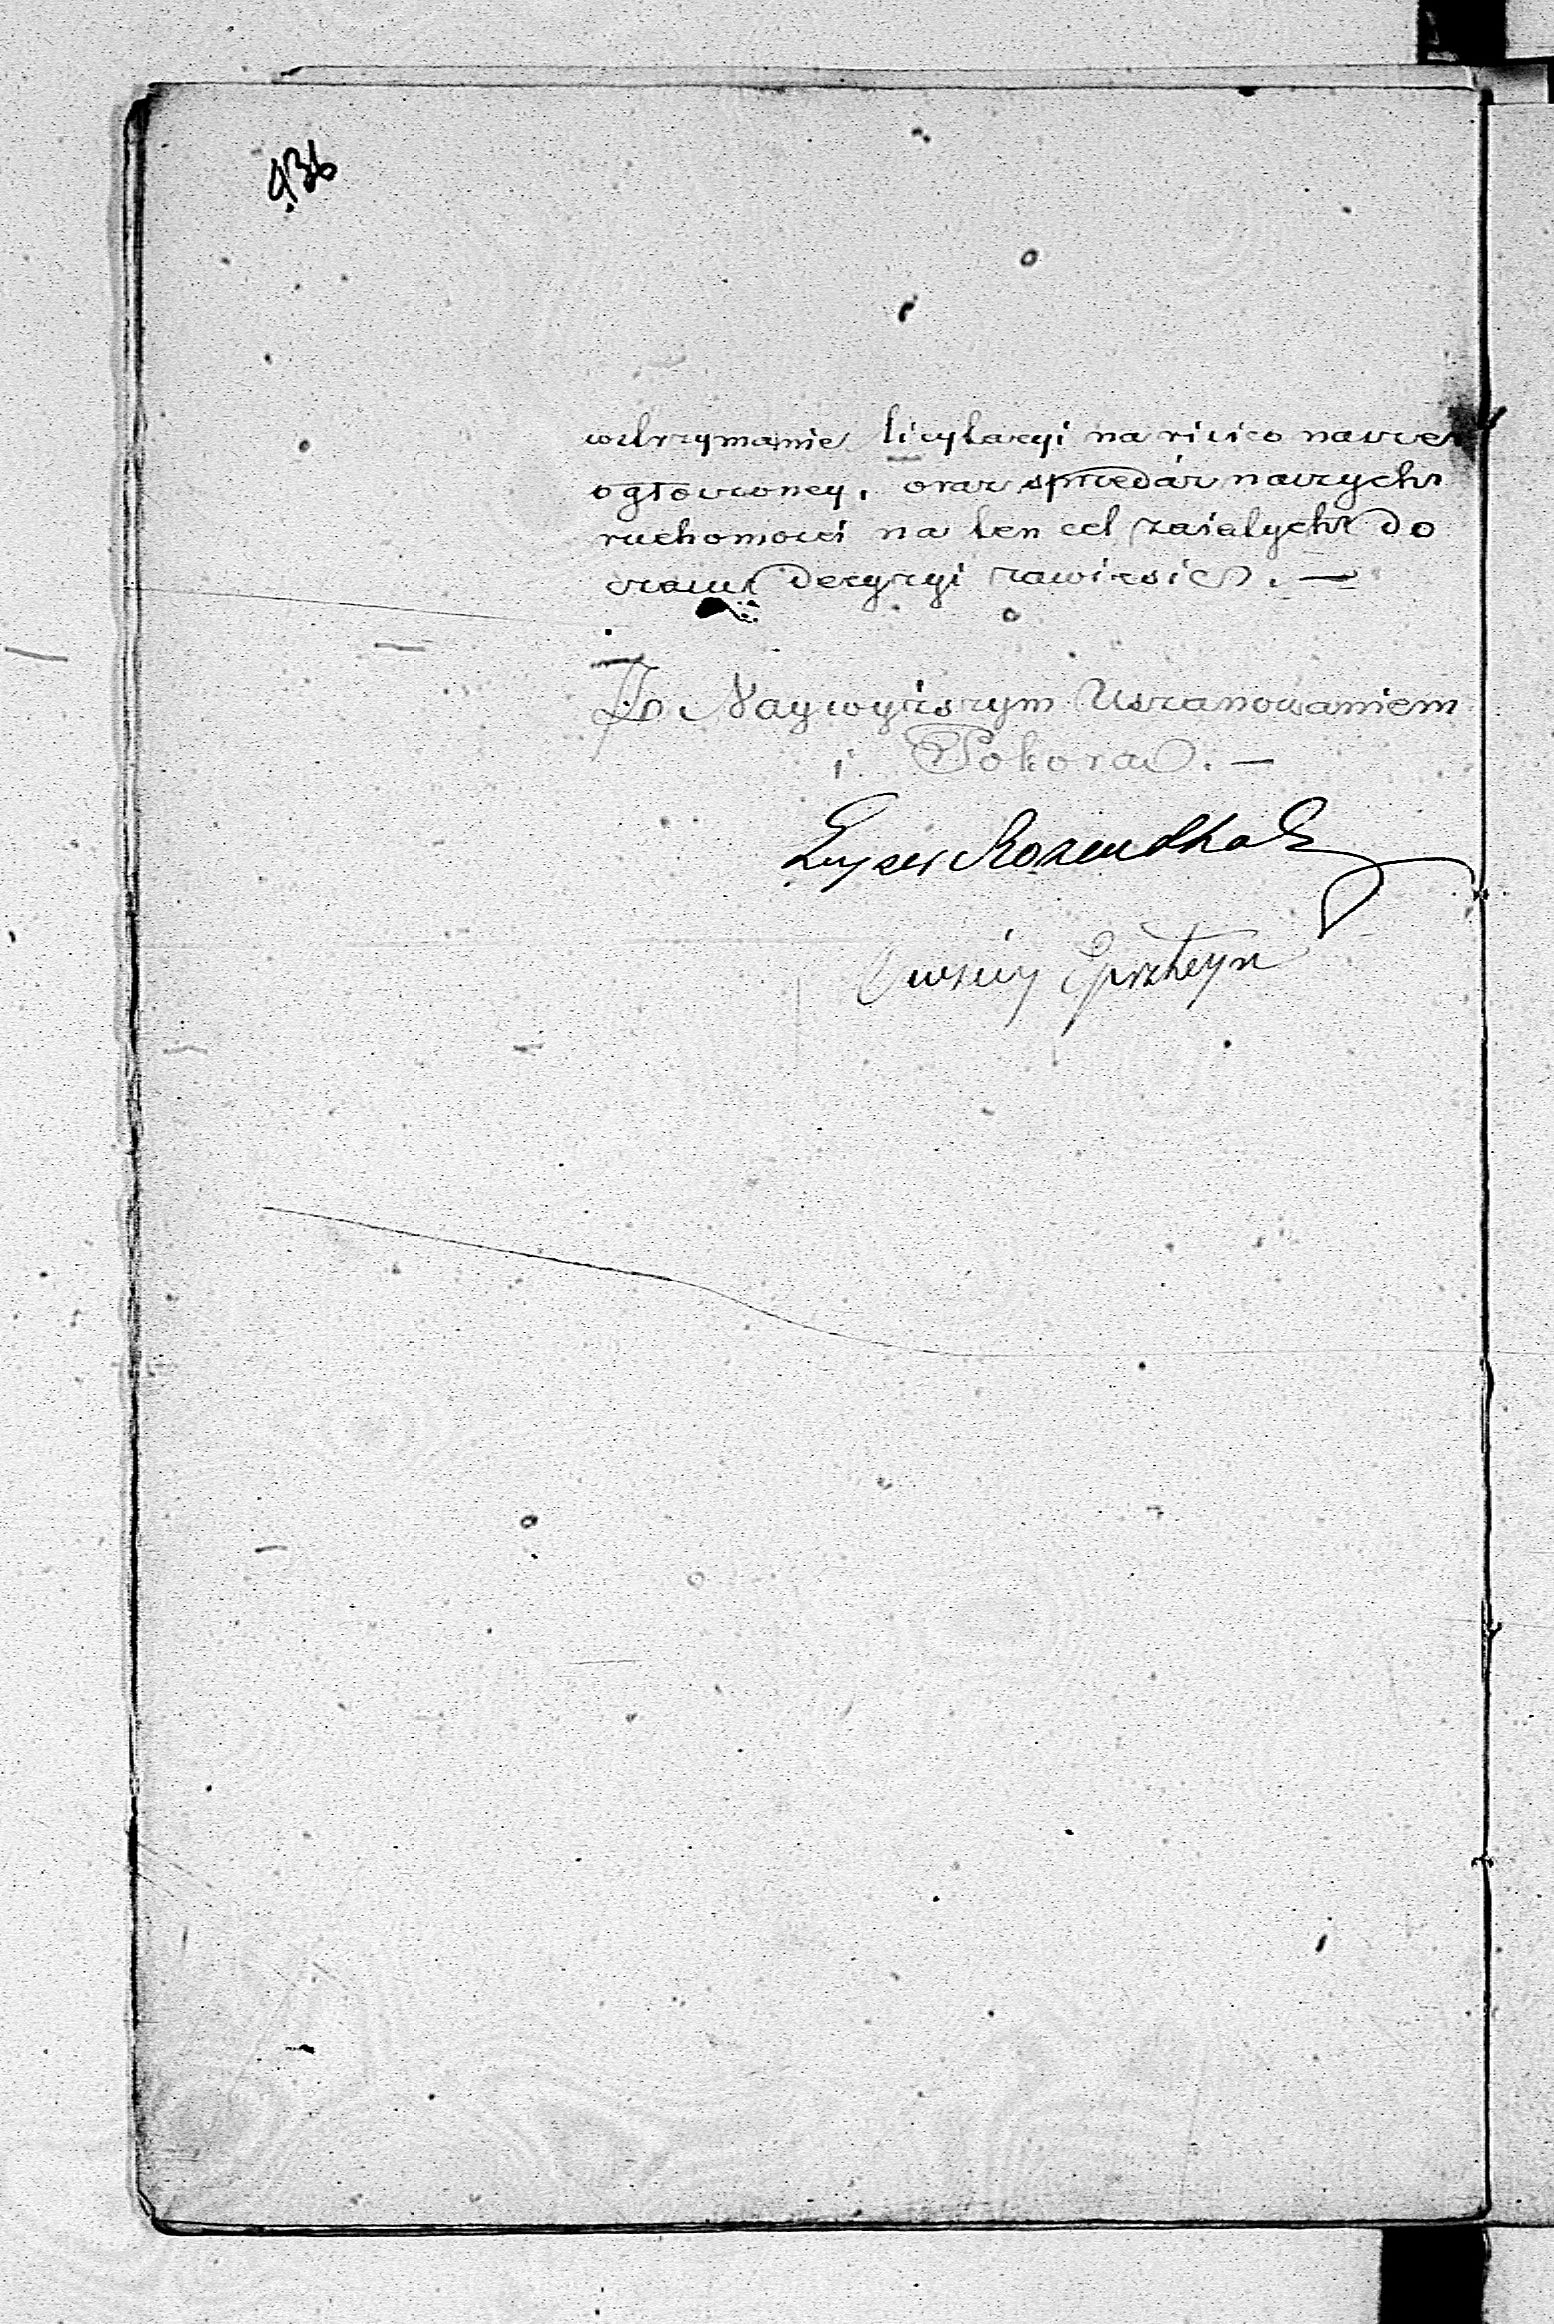 936
wstrzymanie licytacyi na risico nasze
ogłoszoney, oraz sprzedaż naszych
ruchomości na ten cel zaiętych do
czasu decyzyi zawiesić. —
Z Naywyższym Uszanowaniem
i Pokorą. —
Rozendhal
Epszteyn